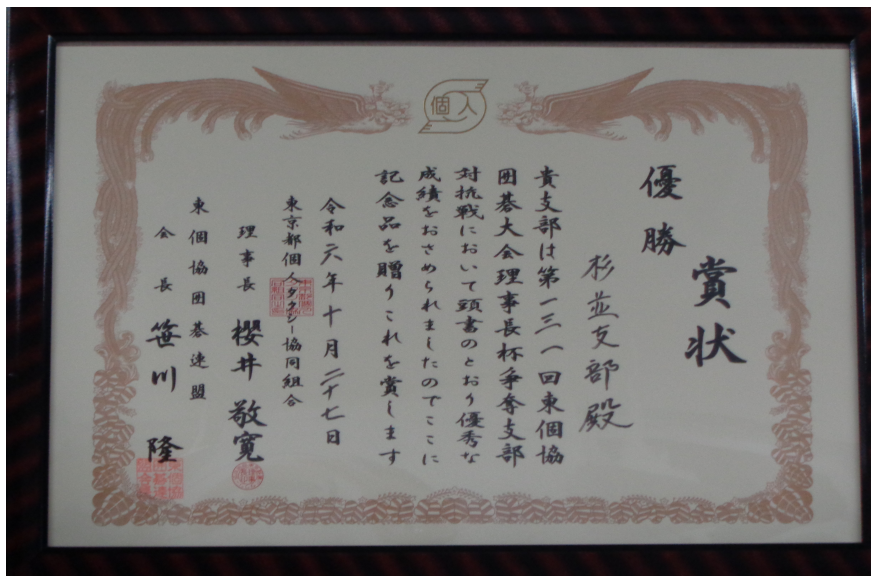 個人
賞状
優勝
杉並支部殿
貴支部は第一三一回東個協
囲碁大会理事長杯争奪支部
対抗戦において頭書のとおり優秀な
成績をおさめられましたのでここに
記念品を贈りこれを賞します
令和六年十月二十七日
東京都個人タクシー協同組合
理事長 櫻井敬寛
東個協囲碁連盟
会長 笹川隆